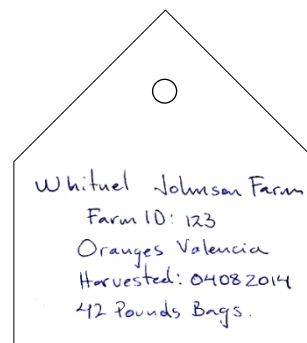 Whitnel Johnson Farm
Farm ID: 123
Oranges Valencia
Harvested: 04082014
42 Pounds Bags.